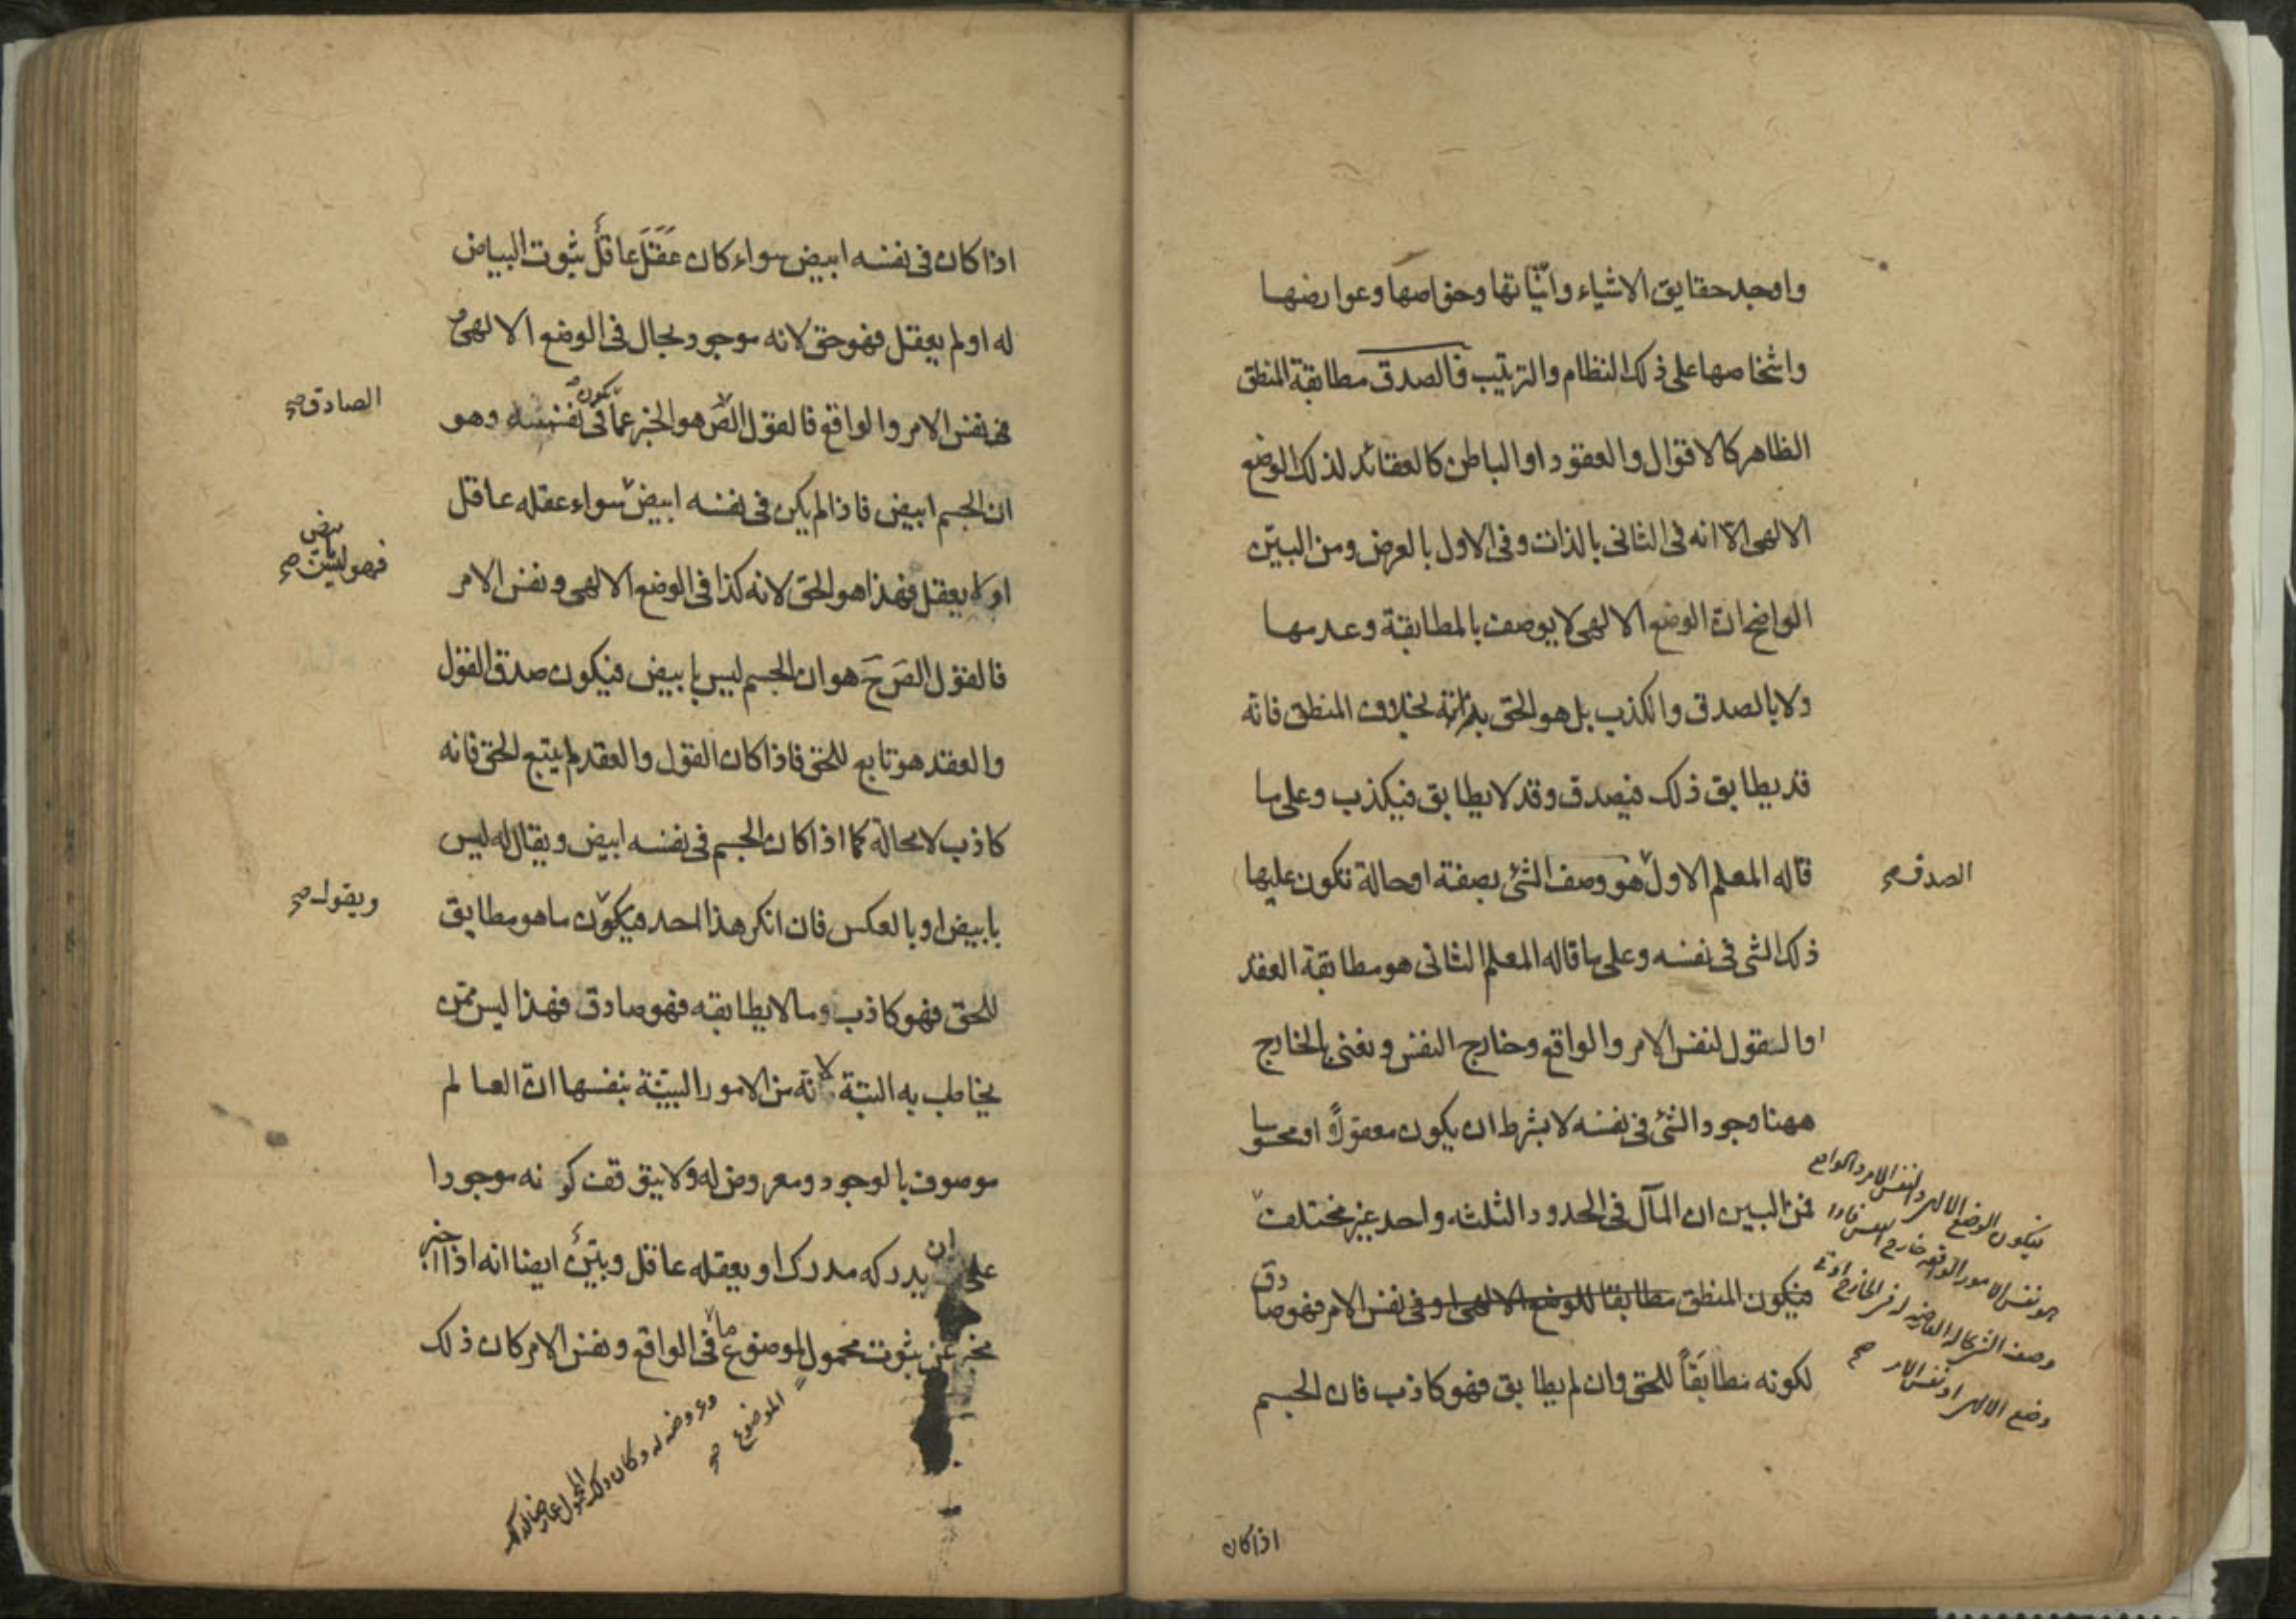 واوجد حقايق الاشياء وانّياتها وخواصها وعوارضها
واشخاصها على ذلك النظام والترتيب فالصدق مطابقة المنطق
الظاهر كالاقوال والعقود او الباطن كالعقائد لذلك الوضع
الالهى الا انه فى الثانى بالذات وفى الاول بالعرض ومن البيّن
الواضح انّ الوضع الالهى لا يوصف بالمطابقة وعدمها
ولا بالصدق والكذب بل هو الحق بذاته بخلاف المنطق فانّه
قد يطابق ذلك فيصدق وقد لا يطابق فيكذب وعلى ما
قاله المعلم الاول هو وصف الشئ بصفة او حالة تكون عليها
الصدق صح
ذلك الشى فى نفسه وعلى ما قاله المعلم الثانى هو مطابقة العقد
او القول لنفس الامر والواقع وخارج النفس ونعنى بالخارج
ههنا وجود الشئ فى نفسه لا بشرط ان يكون معقولاً او محسوسا
فمن البين ان المآل فى الحدود الثلثه واحد غير مختلف
فيكون المنطق مطابقا للوضع الالهى او فى نفس الامر فهو صادق
لكونه مطابقاً للحق وان لم يطابق فهو كاذب فان الجسم
فيكون الوضع الالهى ونفس الامر والواقع
هو نفس الامور الواقعه خارج النفس فاذا
وضع الالهى او نفس الامر صح
اذا كان
اذا كان فى نفسه ابيض سواء كان عَقَلَ عاقلٌ ثبوت البياض
له او لم يعقل فهو حق لانه موجود بحال فى الوضع الالهى و
فى نفس الامر والواقع فالقول الصَ هو الخبر عما يكون فى نفسه وهو
الصادق صح
ان الجسم ابيض فاذا لم يكن فى نفسه ابيض سواء عقله عاقل
او لا يعقل فهذا هو الحق لانه كذا فى الوضع الالهى ونفس الامر
فهو ليس صح
فالقول الصَ حَ هو ان الجسم ليس بابيض فيكون صدق القول
والعقد هو تابع للحق فاذا كان القول والعقد لم يتبع الحق فانه
كاذب لا محالة كما اذا كان الجسم فى نفسه ابيض ويقال له ليس
بابيض او بالعكس فان انكر هذا احد فيكون ما هو مطابق
ويقول صح
للحق فهو كاذب وما لا يطابقه فهو صادق فهذا ليس ممّن
يخاطب به البتة لانّه من الامور البيّنة بنفسها انّ العالم
موصوف بالوجود ومعروض له ولا يتوقف كونه موجودا
على ان يدركه مدرك او يعقله عاقل وبيّن ايضا انه اذا اخبر
مخبر عن ثبوت محمول لموضوع ما فى الواقع ونفس الامر كان ذلك
الموضوع صح
وعروضه له وكان ذلك المحمول عارضا لذلك